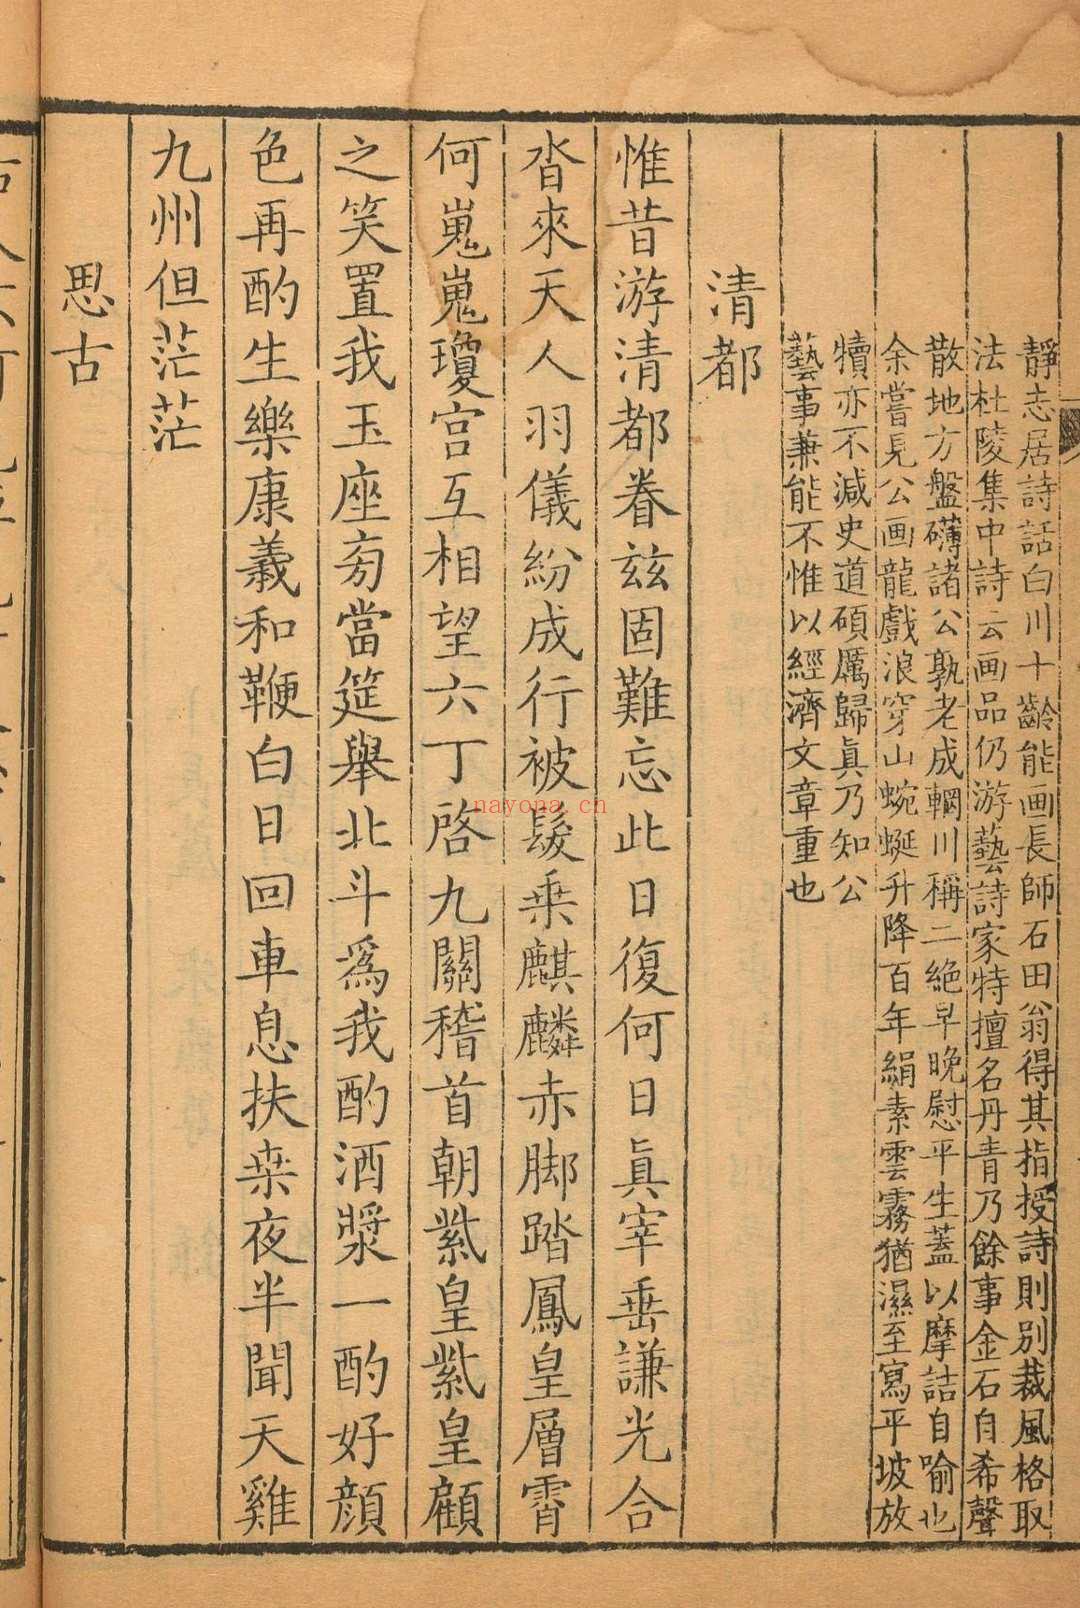 靜志居詩話白川十齡能画長師石田翁得其指授詩則別裁風格取
法杜陵集中詩云画品仍游藝詩家特擅名丹青乃餘事金石自希聲
散地方盤礴諸公孰老成輞川稱二絶早晚慰平生蓋以摩詰自喻也
余嘗見公画龍戲浪穿山蜿蜒升降百年絹素雲霧猶濕至寫平坡放
犢亦不減史道碩厲歸眞乃知公
藝事兼能不惟以經濟文章重也
清都
惟昔游清都眷兹固難忘此日復何日眞宰垂謙光合
沓來天人羽儀紛成行被髮乘麒麟赤脚踏鳳皇層霄
何嵬嵬瓊宫互相望六丁啓九關稽首朝紫皇紫皇顧
之笑置我玉座旁當筵舉北斗爲我酌酒漿一酌好顔
色再酌生樂康羲和鞭白日回車息扶桒夜半聞天雞
九州但茫茫
思古
nayona.cn